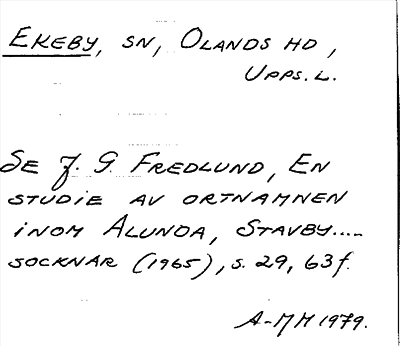 EKEBY, SN, OLANDS HD,
UPPS. L.
SE J. G. FREDLUND, EN
STUDIE AV ORTNAMNEN
INOM ALUNDA, STAVBY.....
SOCKNAR (1965), S. 29, 63f.
A-MM 1979.